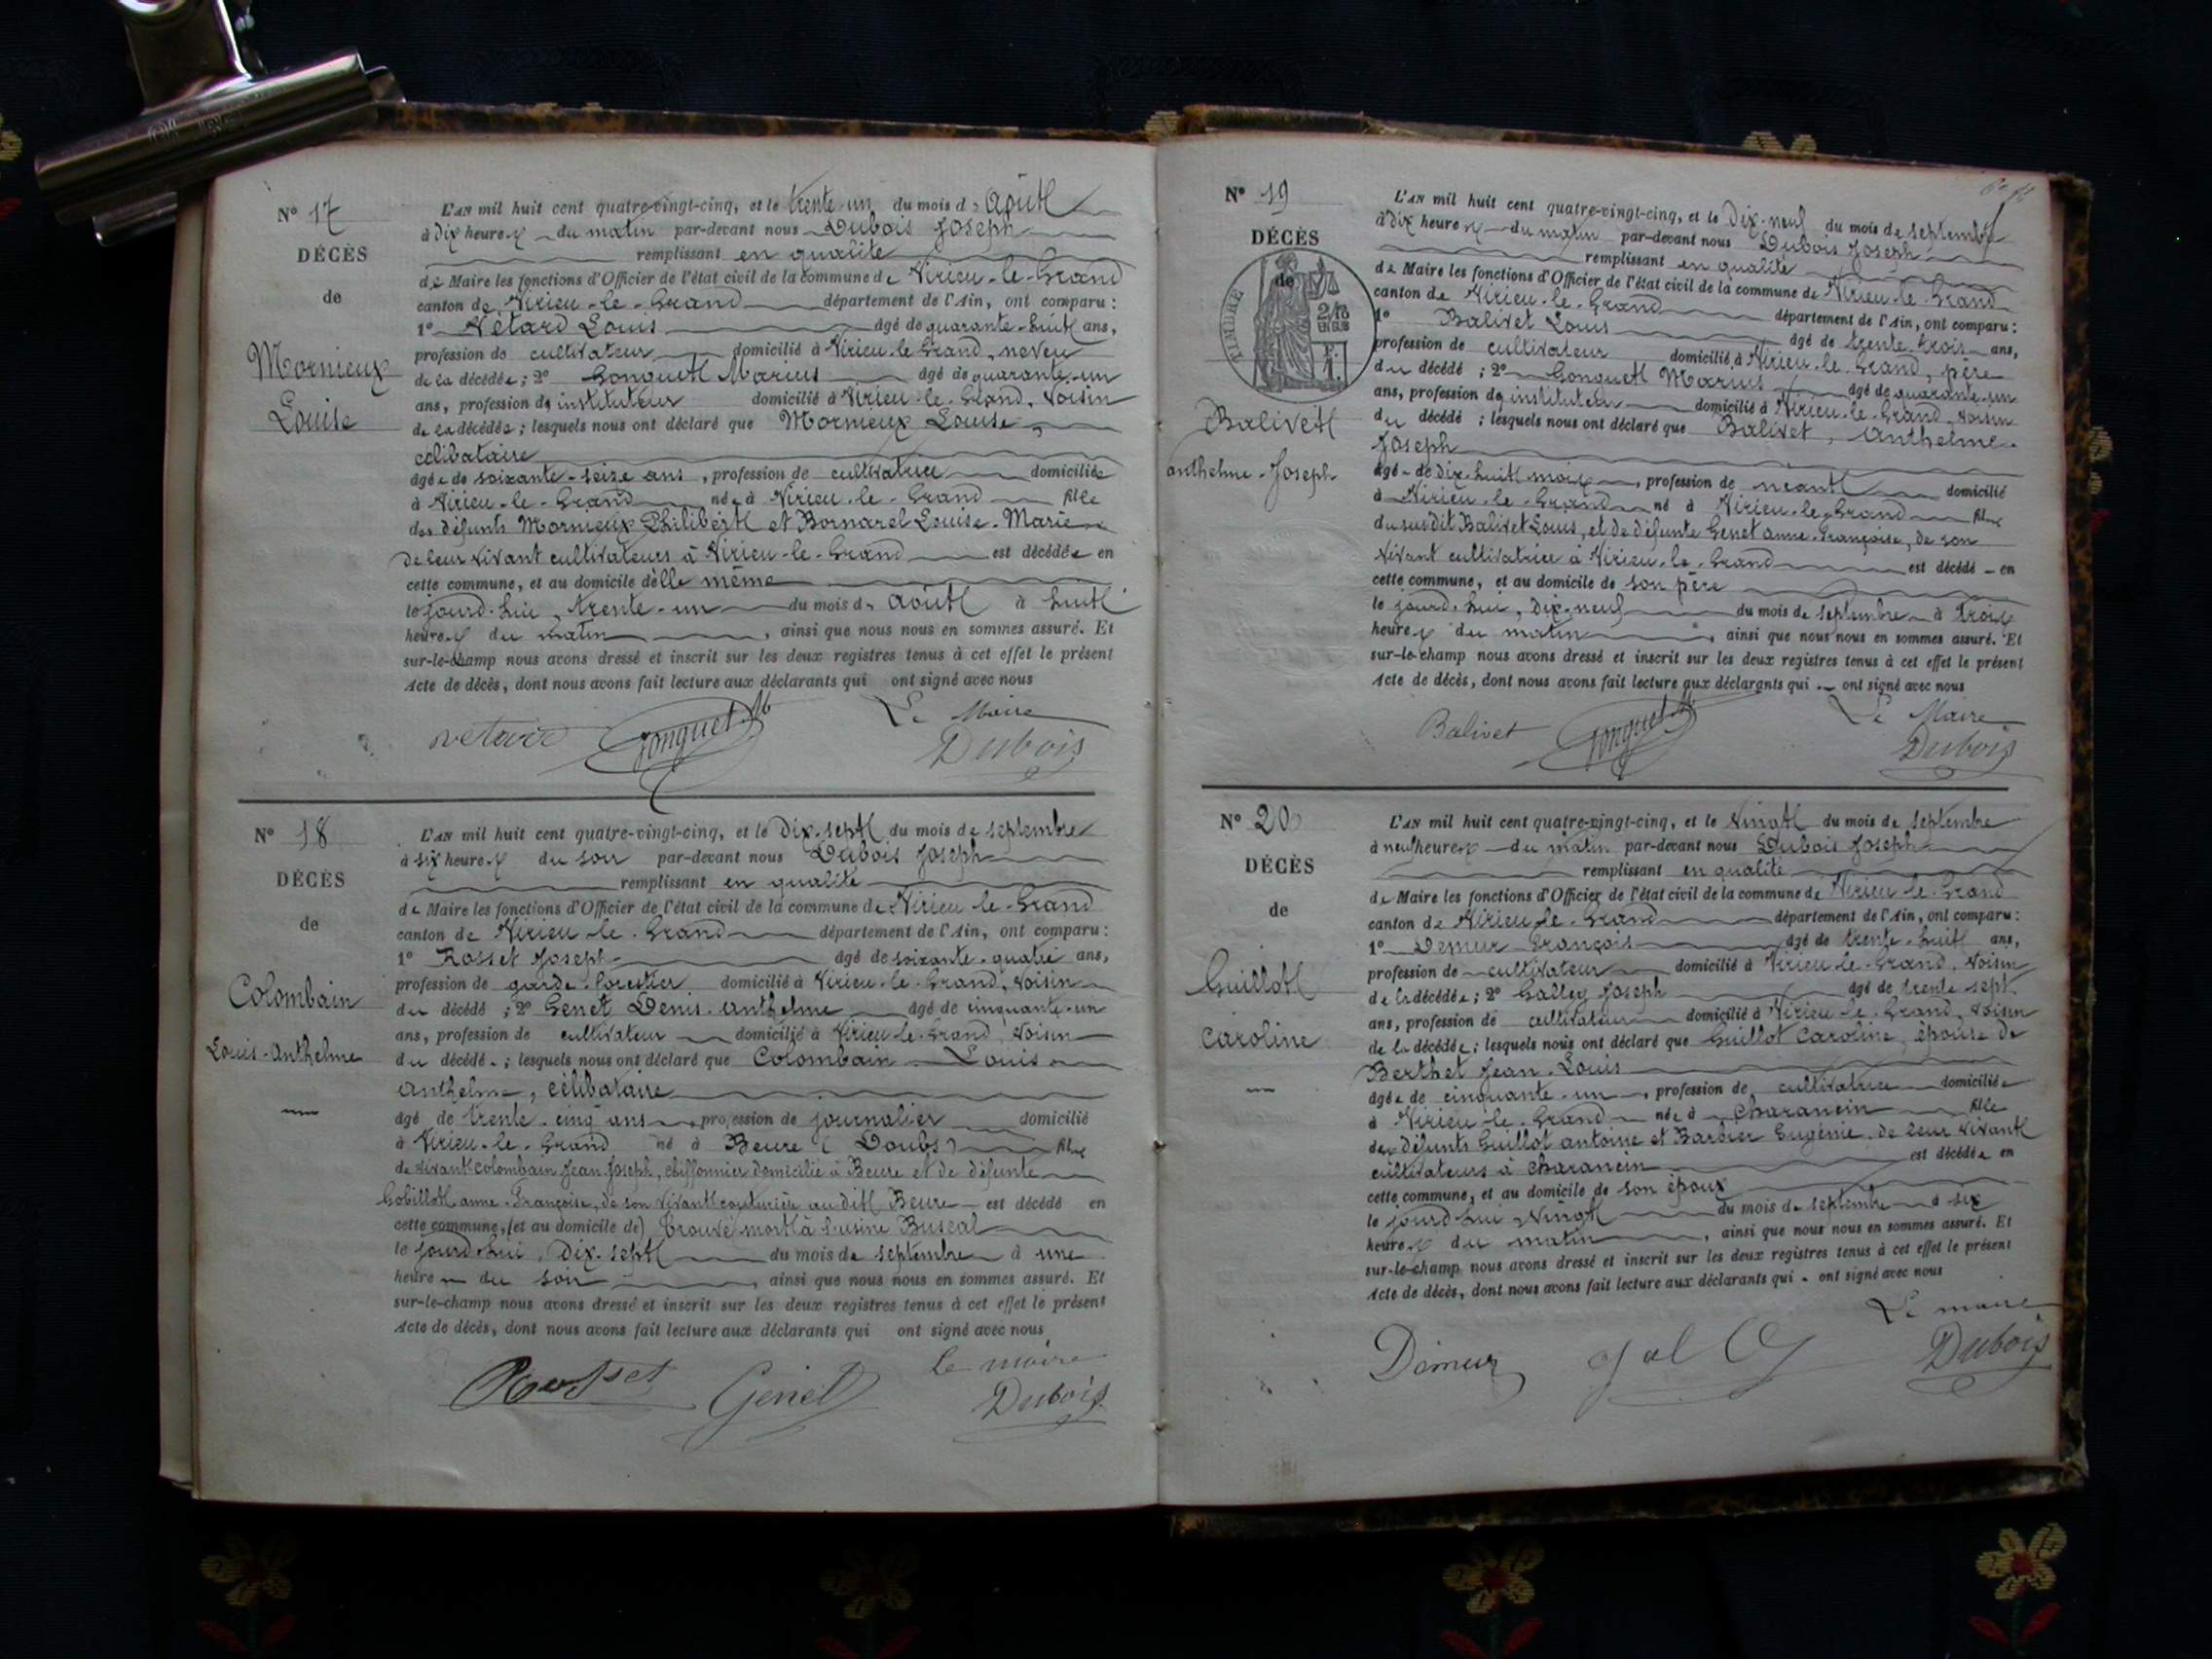 N° 17
DÉCÈS
de
Mornieux
Louise
L'AN mil huit cent quatre-vingt-cinq, et le trente-un du mois d'Août
à dix heures du matin par-devant nous Dubois Joseph
remplissant en qualité
de Maire les fonctions d'Officier de l'état civil de la commune de Virieu-le-Grand
canton de Virieu-le-Grand département de l'Ain, ont comparu :
1° Nétard Louis âgé de quarante-huit ans,
profession de cultivateur domicilié à Virieu-le-Grand, neveu
de la décédée ; 2° Gonguet Marius âgé de quarante-un
ans, profession de instituteur domicilié à Virieu-le-Grand, voisin
de la décédée ; lesquels nous ont déclaré que Mornieux Louise,
célibataire
âgée de soixante-seize ans, profession de cultivatrice domiciliée
à Virieu-le-Grand née à Virieu-le-Grand fille
des défunts Mornieux Philibert et Bornarel Louise-Marie
de leur vivant cultivateurs à Virieu-le-Grand est décédée en
cette commune, et au domicile d'elle même
le jourd'hui, trente-un du mois d'Août à huit
heures du matin, ainsi que nous nous en sommes assuré. Et
sur-le-champ nous avons dressé et inscrit sur les deux registres tenus à cet effet le présent
Acte de décès, dont nous avons fait lecture aux déclarants qui ont signé avec nous
Le Maire
Gonguet M
Dubois
N° 18
DÉCÈS
de
Colombain
Louis-Anthelme
L'AN mil huit cent quatre-vingt-cinq, et le Dix-sept du mois de septembre
à six heures du soir par-devant nous Dubois Joseph
remplissant en qualité
de Maire les fonctions d'Officier de l'état civil de la commune de Virieu-le-Grand
canton de Virieu-le-Grand département de l'Ain, ont comparu :
1° Rosset Joseph âgé de soixante-quatre ans,
profession de garde-forestier domicilié à Virieu-le-Grand, voisin
du décédé ; 2° Genet Denis-Anthelme âgé de cinquante-un
ans, profession de cultivateur domicilié à Virieu-le-Grand, voisin
du décédé ; lesquels nous ont déclaré que Colombain Louis
Anthelme, célibataire
âgé de trente-cinq ans, profession de journalier domicilié
à Virieu-le-Grand né à Beure (Doubs) fils
de vivant Colombain Jean Joseph, chiffonnier domicilié à Beure et de défunte
Gobillot anne-Françoise, de son vivant couturière audit Beure est décédé en
cette commune, (et au domicile de) trouvé mort à l'usine Buscal
le jourd'hui, dix-sept du mois de septembre à une
heure du soir, ainsi que nous nous en sommes assuré. Et
sur-le-champ nous avons dressé et inscrit sur les deux registres tenus à cet effet le présent
Acte de décès, dont nous avons fait lecture aux déclarants qui ont signé avec nous
le maire
Rosset Genet Dubois
N° 19
DÉCÈS
de
TIMBRE
2/10
EN SUS
Balivet
anthelme-Joseph
L'AN mil huit cent quatre-vingt-cinq, et le Dix-neuf du mois de septembre
à dix heures du matin par-devant nous Dubois Joseph
remplissant en qualité
de Maire les fonctions d'Officier de l'état civil de la commune de Virieu-le-Grand
canton de Virieu-le-Grand département de l'Ain, ont comparu :
1° Balivet Louis âgé de trente-trois ans,
profession de cultivateur domicilié à Virieu-le-Grand, père
du décédé ; 2° Gonguet Marius âgé de quarante-un
ans, profession de instituteur domicilié à Virieu-le-Grand, voisin
du décédé ; lesquels nous ont déclaré que Balivet, anthelme-
Joseph
âgé de dix-huit mois, profession de néant domicilié
à Virieu-le-Grand né à Virieu-le-Grand fils
du susdit Balivet Louis, et de défunte Genet anne-Françoise, de son
vivant cultivatrice à Virieu-le-Grand est décédé en
cette commune, et au domicile de son père
le jourd'hui, dix-neuf du mois de septembre à trois
heures du matin, ainsi que nous nous en sommes assuré. Et
sur-le-champ nous avons dressé et inscrit sur les deux registres tenus à cet effet le présent
Acte de décès, dont nous avons fait lecture aux déclarants qui ont signé avec nous
Le Maire
Balivet Gonguet M Dubois
N° 20
DÉCÈS
de
Guillot
Caroline
L'AN mil huit cent quatre-vingt-cinq, et le vingt du mois de septembre
à neuf heures du matin par-devant nous Dubois Joseph
remplissant en qualité
de Maire les fonctions d'Officier de l'état civil de la commune de Virieu-le-Grand
canton de Virieu-le-Grand département de l'Ain, ont comparu :
1° Demeur François âgé de trente-huit ans,
profession de cultivateur domicilié à Virieu-le-Grand, voisin
de la décédée ; 2° Galley Joseph âgé de trente sept
ans, profession de cultivateur domicilié à Virieu-le-Grand, voisin
de la décédée ; lesquels nous ont déclaré que Guillot Caroline, épouse de
Berthet Jean-Louis
âgée de cinquante-un, profession de cultivatrice domiciliée
à Virieu-le-Grand née à Charancin fille
des défunts Guillot antoine et Barbier Eugénie, de leur vivant
cultivateurs à Charancin est décédée en
cette commune, et au domicile de son époux
le jourd'hui vingt du mois de septembre à six
heures du matin, ainsi que nous nous en sommes assuré. Et
sur-le-champ nous avons dressé et inscrit sur les deux registres tenus à cet effet le présent
Acte de décès, dont nous avons fait lecture aux déclarants qui ont signé avec nous
Le maire
Dubois